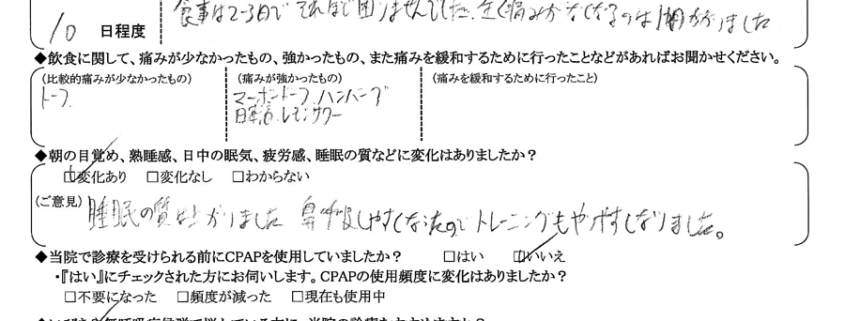 食事は2~3日でそれほど困りませんでした。全く痛みがなくなるのは1ヶ月かかりました
10 日程度
◆飲食に関して、痛みが少なかったもの、強かったもの、また痛みを緩和するために行ったことなどがあればお聞かせください。
(比較的痛みが少なかったもの) (痛みが強かったもの) (痛みを緩和するために行ったこと)
トーフ マーボートーフ、ハンバーグ
日本酒、レモンサワー
◆朝の目覚め、熟睡感、日中の眠気、疲労感、睡眠の質などに変化はありましたか?
☑変化あり □変化なし □わからない
(ご意見) 睡眠の質は上がりました 鼻呼吸しやすくなったのでトレーニングもやりやすくなりました。
◆当院で診療を受けられる前にCPAPを使用していましたか? □はい ☑いいえ
・『はい』にチェックされた方にお伺いします。CPAPの使用頻度に変化はありましたか?
□不要になった □頻度が減った □現在も使用中